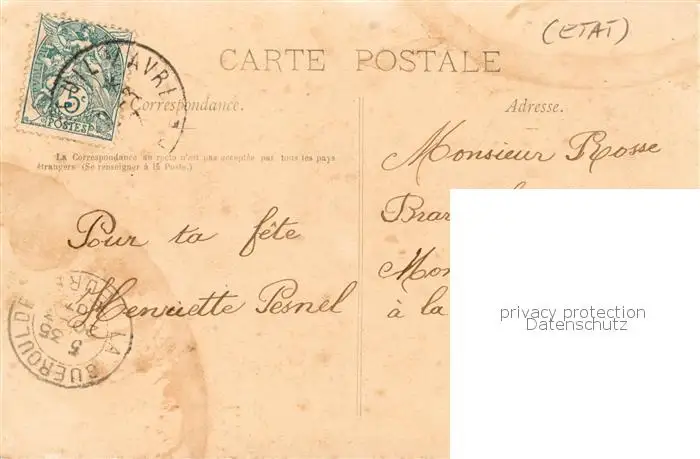 (ETAT)
CARTE POSTALE
5c
POSTES
Correspondance.
Adresse.
La Correspondance au recto n'est pas acceptée par tous les pays
étrangers. (Se renseigner à la Poste.)
Pour ta fête
Henriette Pesnel
Monsieur Rosse
à la
LA GUEROULDE
privacy protection
Datenschutz